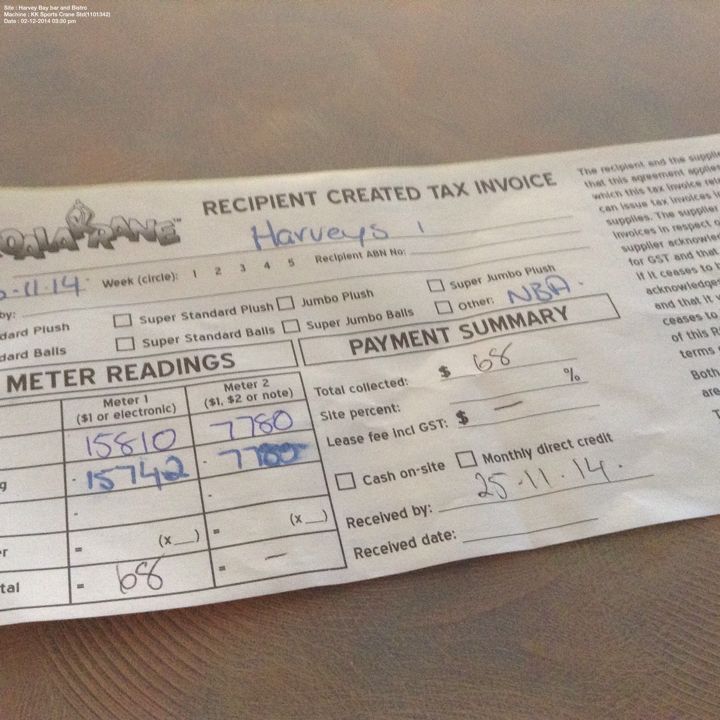 Site : Harvey Bay bar and Bistro
Machine : KK Sports Crane Std(1101342)
Date : 02-12-2014 03:00 pm
RECIPIENT CREATED TAX INVOICE
Harveys 1
-11.14. Week (circle): 1 2 3 4 5 Recipient ABN No:
by:
dard Plush Super Standard Plush Jumbo Plush Super Jumbo Plush
dard Balls Super Standard Balls Super Jumbo Balls Other: NBA.
METER READINGS
Meter 1 Meter 2
($1 or electronic) ($1, $2 or note)
15810 7780
g - 15742 - 7780
- -
r = (x__) = (x__)
tal = 68 = —
PAYMENT SUMMARY
Total collected: $ 68
Site percent: %
Lease fee incl GST: $ —
Cash on-site Monthly direct credit
Received by: 25.11.14.
Received date:
The recipient and the supplie
that this agreement applies
which this tax invoice rel
can issue tax invoices i
supplies. The supplier
invoices in respect o
supplier acknowle
for GST and that
if it ceases to b
acknowledge
and that it
ceases to
of this R
terms
Both
are